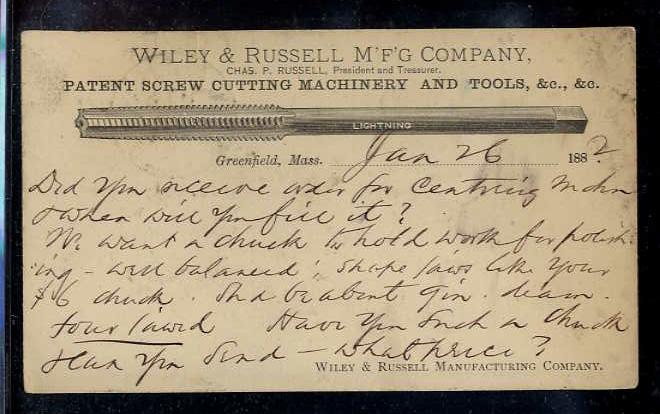 WILEY & RUSSELL M'F'G COMPANY,
CHAS. P. RUSSELL, President and Treasurer.
PATENT SCREW CUTTING MACHINERY AND TOOLS, &c., &c.
LIGHTNING
Greenfield, Mass. Jan 26 1882
Did you receive order for Centering Mchn
& when will you fill it?
We want a chuck to hold work for polish-
ing - well balanced; shape jaws like your
$6 chuck. Shd be about 9 in. diam.
four jawed Have you such a chuck
& Can you send - what price?
WILEY & RUSSELL MANUFACTURING COMPANY.